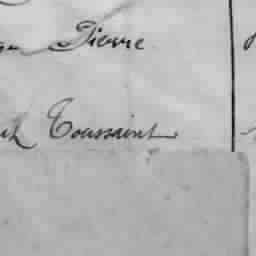 Pierre
Toussaint